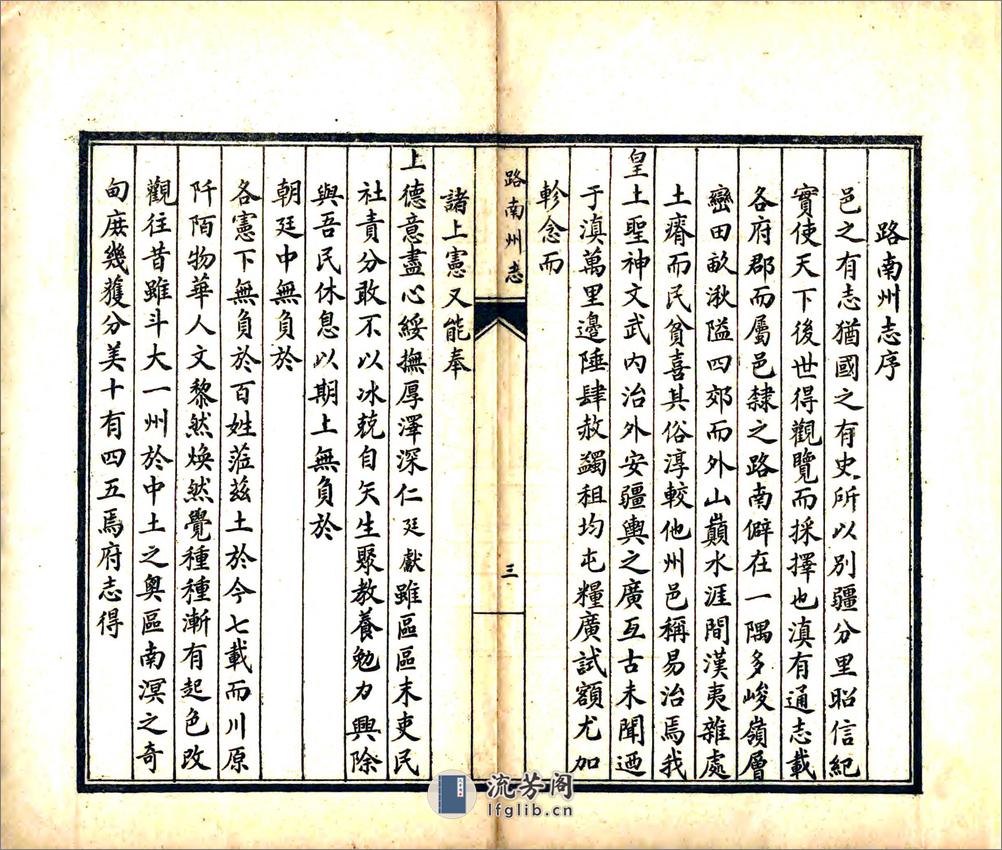 路南州志序
邑之有志猶國之有史所以別疆分里昭信紀
實使天下後世得觀覽而採擇也滇有通志載
各府郡而屬邑隸之路南僻在一隅多峻嶺層
巒田畝湫隘四郊而外山巔水涯間漢夷雜處
土瘠而民貧喜其俗淳較他州邑稱易治焉我
皇上聖神文武內治外安疆輿之廣亙古未聞迺
于滇萬里邊陲肆赦蠲租均屯糧廣試額尤加
軫念而
路南州志
三
諸上憲又能奉
上德意盡心綏撫厚澤深仁廷獻雖區區末吏民
社責分敢不以冰兢自矢生聚教養勉力興除
與吾民休息以期上無負於
朝廷中無負於
各憲下無負於百姓蒞茲土於今七載而川原
阡陌物華人文黎然煥然覺種種漸有起色改
觀往昔雖斗大一州於中土之奧區南溟之奇
甸庶幾獲分美十有四五焉府志得
流芳阁
lfglib.cn